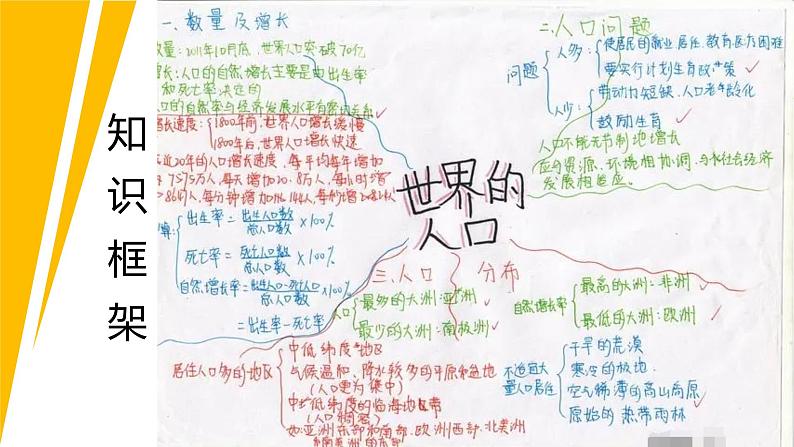 知识框架
一、数量及增长
数量：2011年10月底，世界人口突破70亿
增长：人口的自然增长主要是由出生率
和死亡率决定的
人口的自然率与经济发展水平有密切关系
增长速度：1800年前，世界人口增长缓慢
1800年后，世界人口增长快速
近20年的人口增长速度，每年平均每年增加
7575万人，每天增加20.8万人，每小时增
8649人，每分钟增加144人，每秒增2.4
出生率=出生人口数/总人口数×100%
死亡率=死亡人口数/总人口数×100%
自然增长率=出生人口-死亡人口/总人口数×100%
=出生率-死亡率
二、人口问题
问题
人多：使居民的就业、居住、教育、医疗困难
要实行计划生育政策
人少：劳动力短缺、人口老龄化
鼓励生育
人口不能无节制地增长
应与资源、环境相协调，与社会经济
发展相适应。
世界的
人口
三、人口分布
人口
最多的大洲：亚洲
最少的大洲：南极洲
自然增长率
最高的大洲：非洲
最低的大洲：欧洲
居住人口多的地区
中低纬度地区
气候温和、降水较多的平原和盆地
（人口更为集中）
中低纬度的临海地带
（人口稠密）
如：亚洲东部和南部、欧洲西部、北美洲
不适宜大量人口居住
干旱的荒漠
寒冷的极地
空气稀薄的高山高原
原始的热带雨林